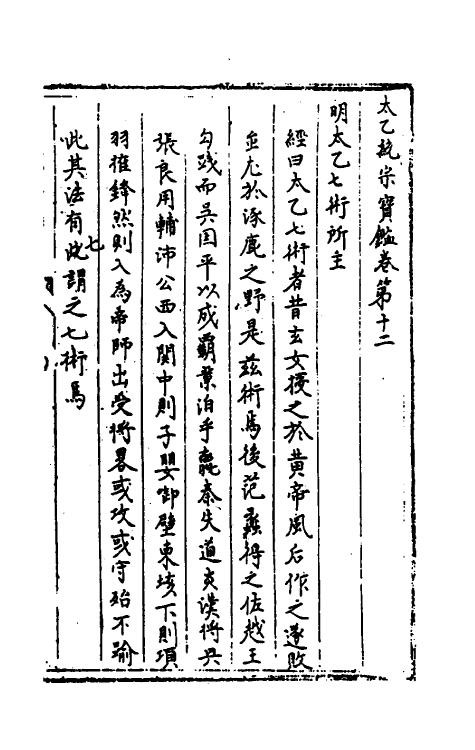 太乙統宗寶鑑卷第十二
明太乙七術所主
經曰太乙七術者昔玄女授之於黄帝風后作之遂敗
蚩尤於涿鹿之野是兹術焉後范蠡得之佐越王
勾践而吳国平以成霸業泊乎嬴秦失道炎漢将兴
張良用輔沛公西入関中則子嬰卸璧東垓下則項
羽摧鋒然則入為帝師出受将畧或攻或守殆不踰
此其法有七此謂之七術焉